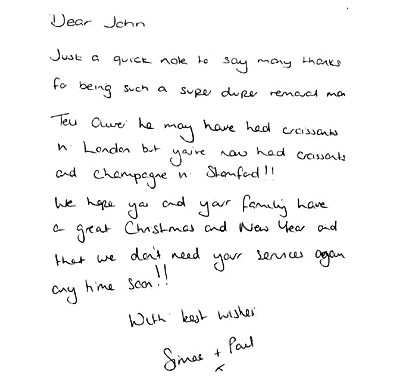 Dear John
Just a quick note to say many thanks
for being such a super duper removal man
Tell he may have had croissants
in London but you've now had croissants
and champagne in Stamford!!
We hope you and your family have
a great Christmas and New Year and
that we don't need your services again
any time soon!!
With best wishes
+ Paul
x